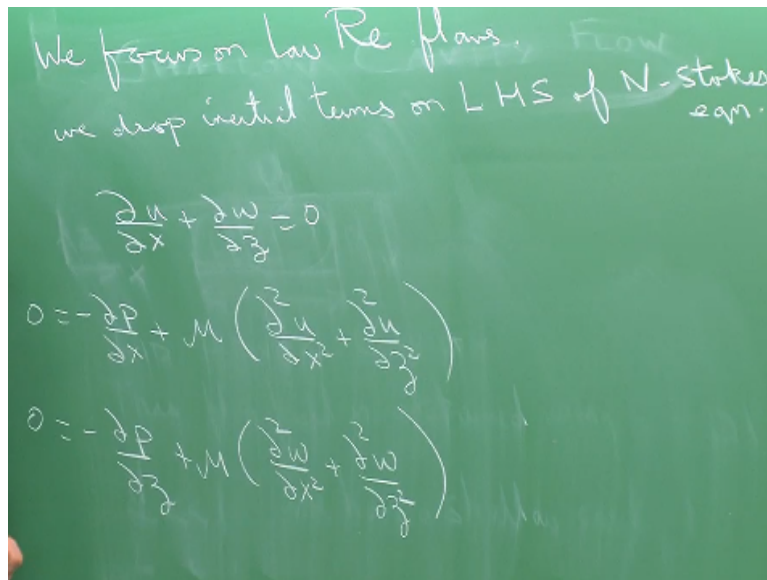 We focus on Low Re flows.
we drop inertial terms on LHS of N-Stokes eqn.
∂u/∂x + ∂w/∂z = 0
0 = -∂p/∂x + μ(∂²u/∂x² + ∂²u/∂z²)
0 = -∂p/∂z + μ(∂²w/∂x² + ∂²w/∂z²)